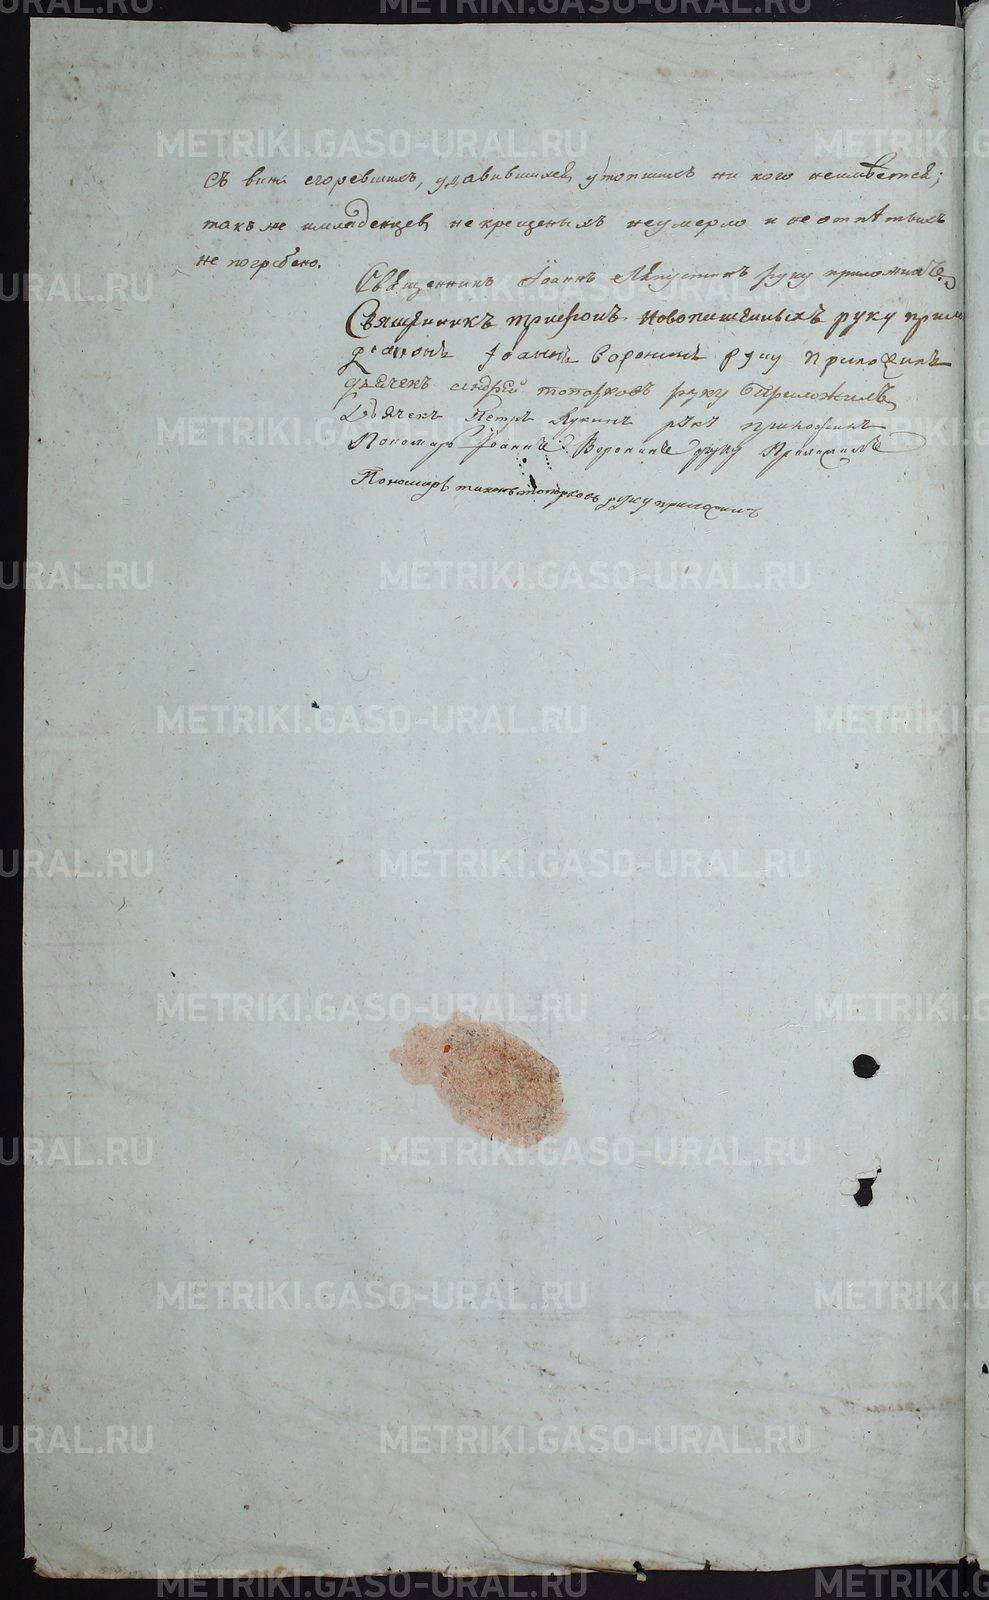 съ вина сгоревшихъ, удавившихся, утопшихъ ни кого неимѣется;
такъ же имладенцев, не крещеныхъ неумерло и не отпѣтыхъ
не погребено.
Священникъ Іоаннъ руку приложилъ
Священникъ Трифонъ Новопашенныхъ руку прило
Диаконъ Іоаннъ Воронинъ руку Приложилъ
дьячекъ андрей топорковъ руку Приложилъ
Дьячекъ Петръ Кукинъ руку приложилъ
Пономарь Іоаннъ Воронинъ руку Приложилъ
Пономарь тихонъ топорковъ руку приложилъ
METRIKI.GASO-URAL.RU